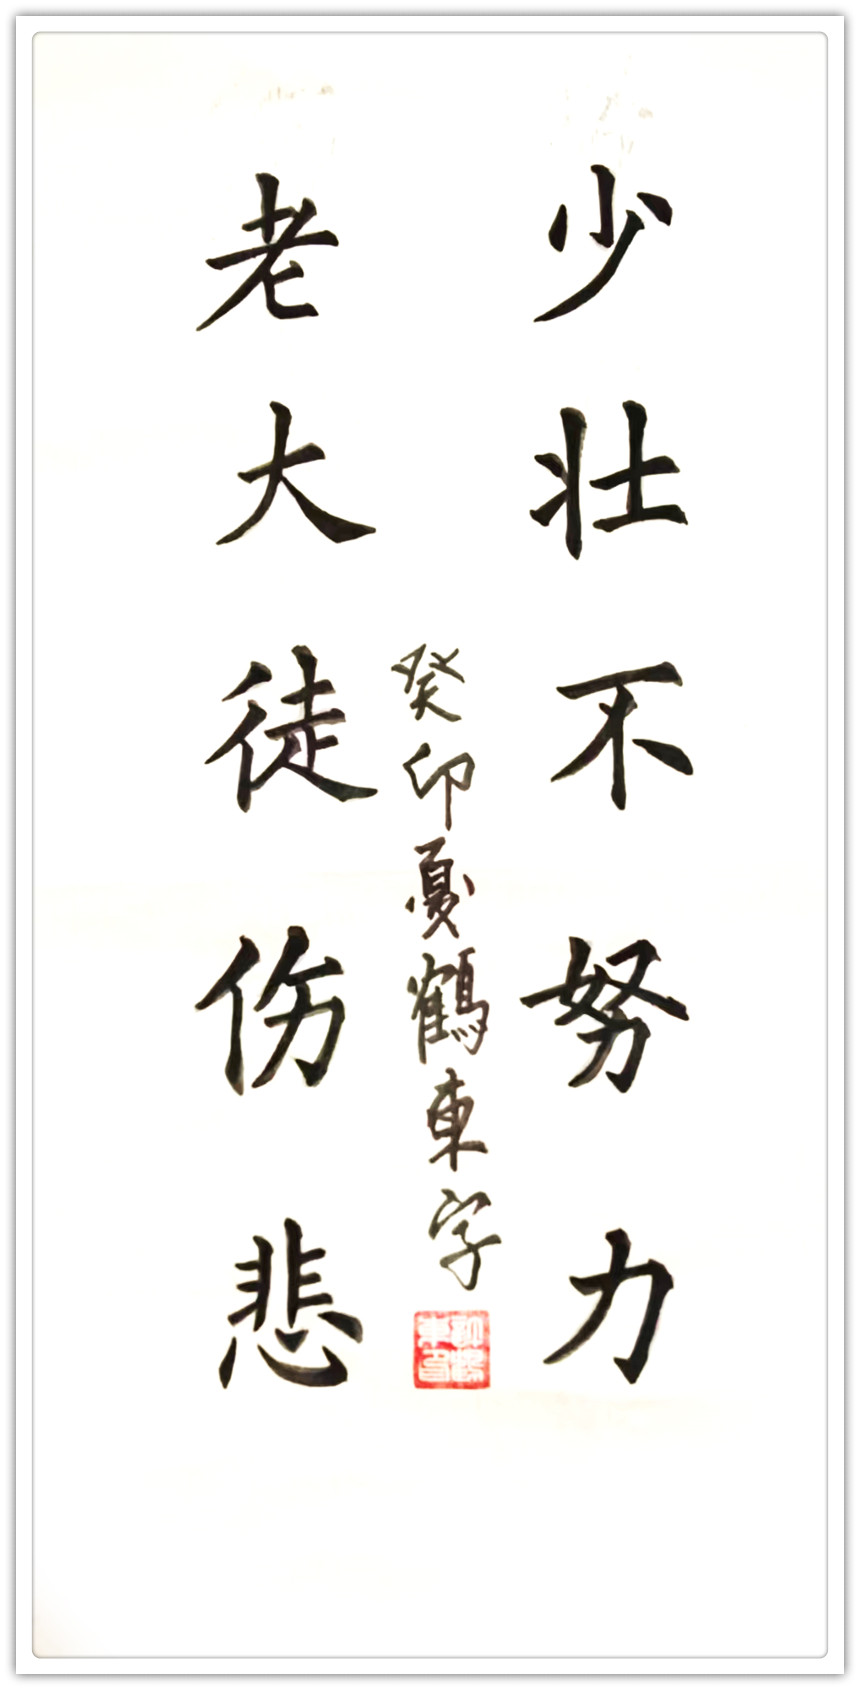 少壮不努力
老大徒伤悲
癸卯夏鹤东字